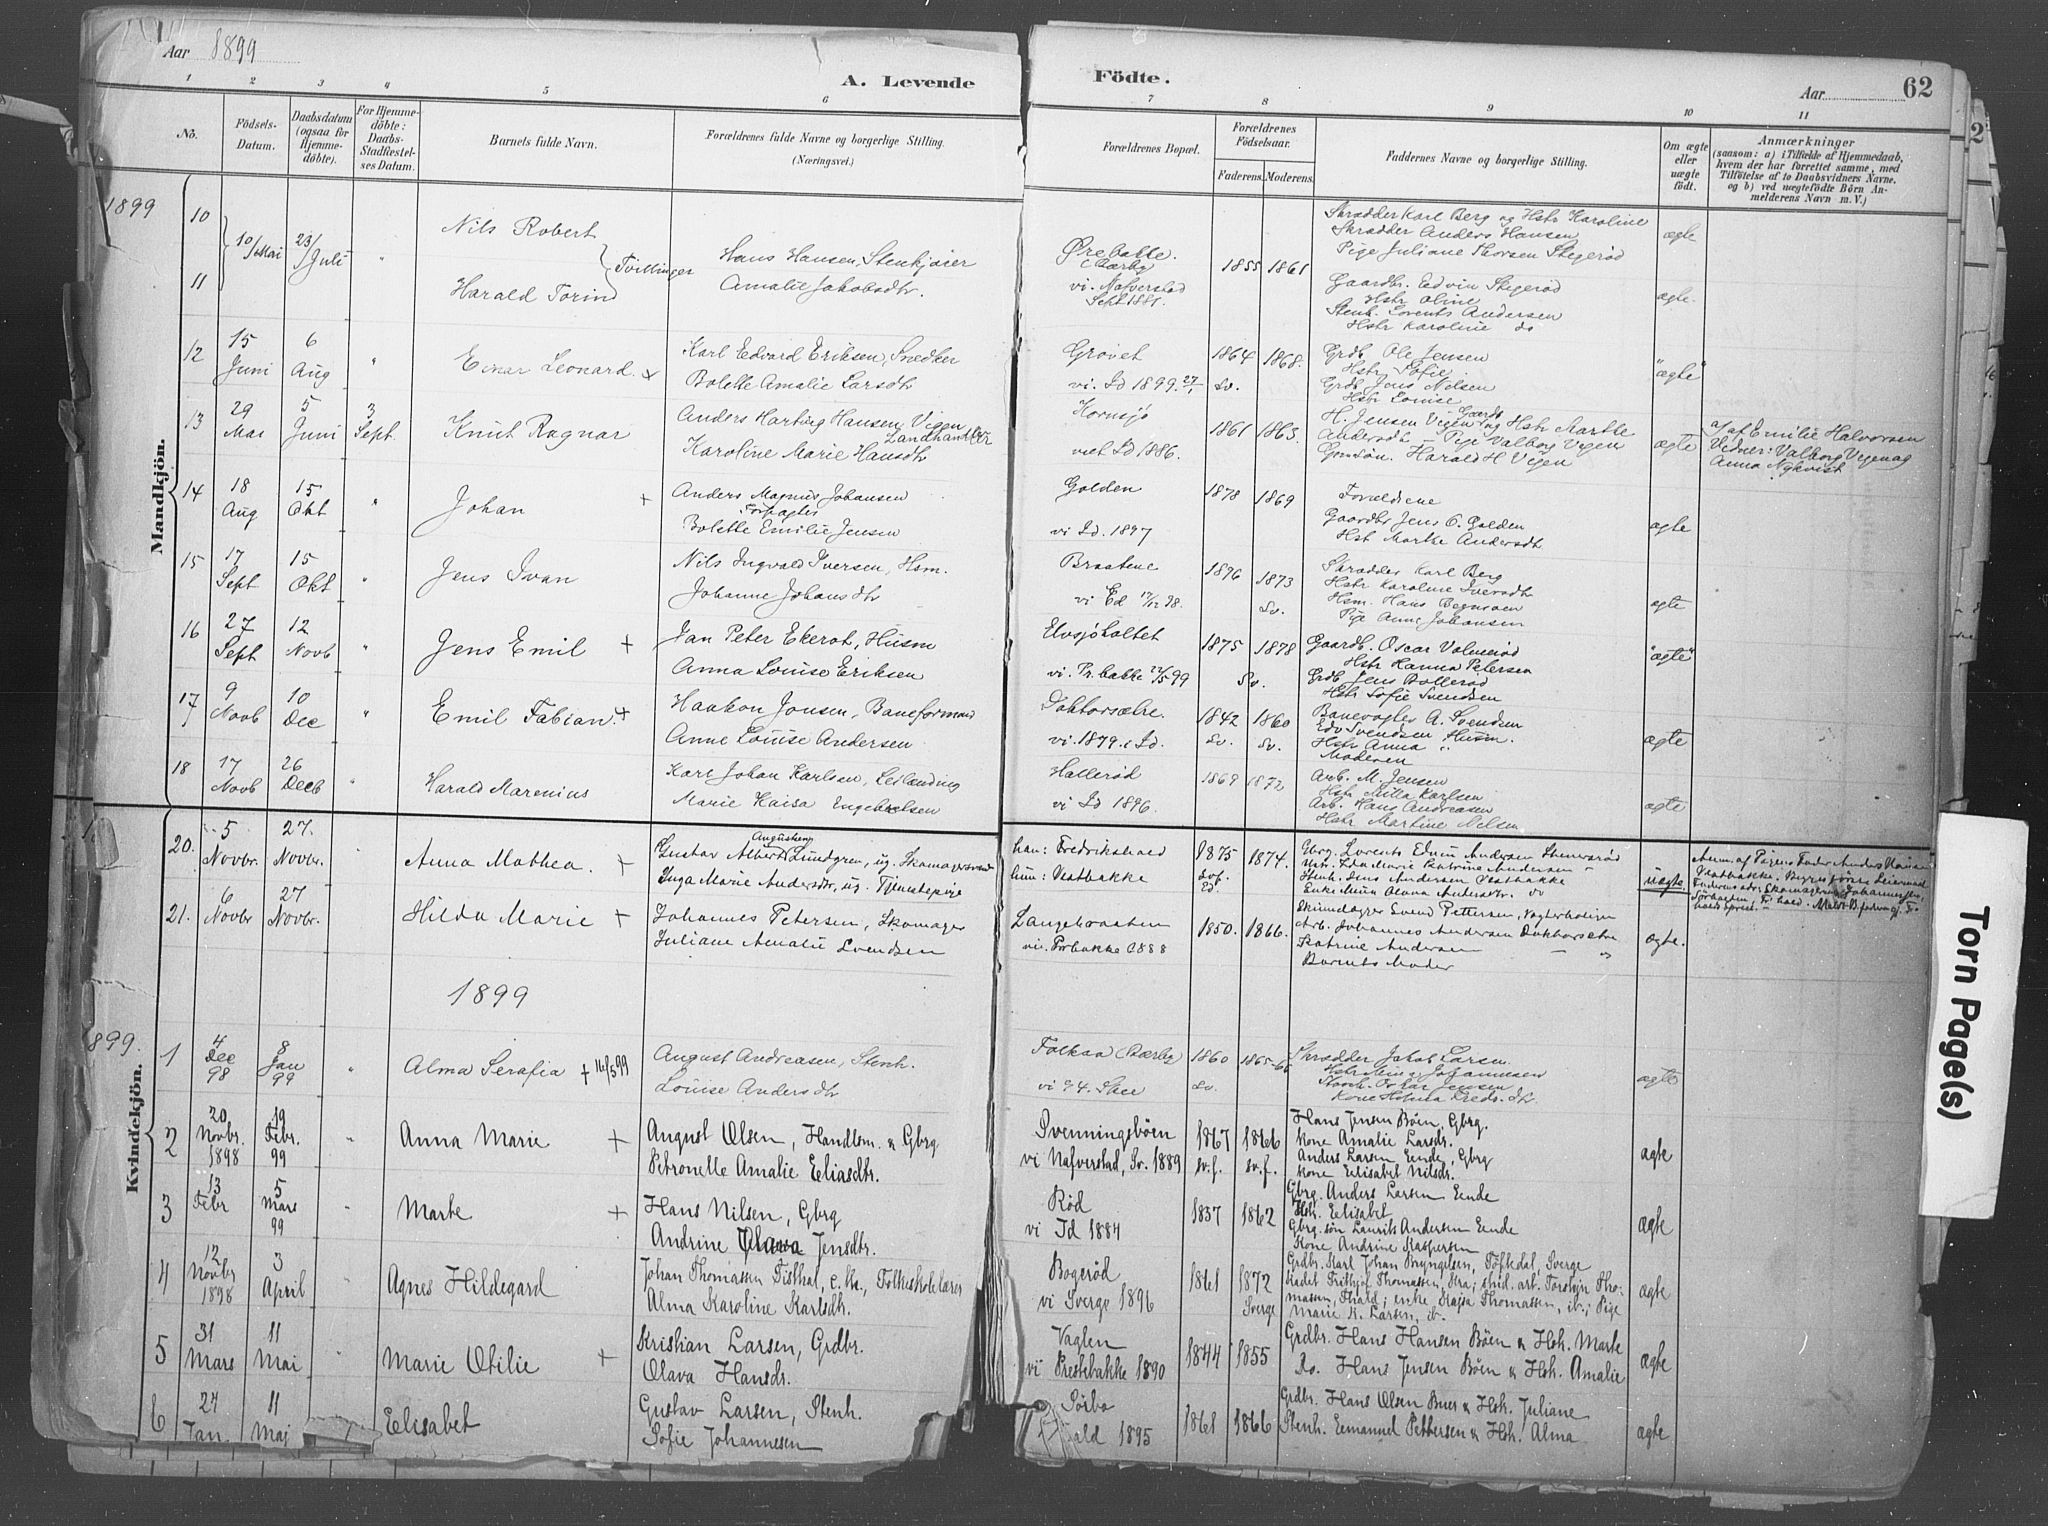 Aar 1899
A. Levende Födte.
Aar
62
1 2 3 4 5 6 7 8 9 10 11
No.
Födsels-Datum.
Daabsdatum (ogsaa for Hjemme-döbte).
For Hjemme-döbte: Daabs-Stadfæstel-ses Datum.
Barnets fulde Navn.
Forældrenes fulde Navne og borgerlige Stilling. (Næringsvei.)
Forældrenes Bopæl.
Forældrenes Födselsaar.
Faderens. Moderens.
Faddernes Navne og borgerlige Stilling.
Om ægte eller uægte födt.
Anmærkninger
(saasom: a) i Tilfælde af Hjemmedaab, hvem der har forrettet samme, med Tilföielse af to Daabsvidners Navne. og b) ved uægtefödte Börn An-melderens Navn m. V.)
1899
Mandkjön.
10 10/Mai 23/Juli " Nils Robert
11 Harald Torind Tvillinger
Hans Hansen, Stenhjører
Amalie Jakobsdtr.
Ørebakke.
vi. Nafverstad
Sept 1881.
1855 1861
Skrædder Karl Berg og Hstr Karoline
Skrædder Anders Hansen
Pige Juliane Thorsen Stegerød
Gaardbr. Edvin Stegerød
Hstr Oline
Stenh. Lorents Andersen
Hstr Karoline do
ægte
ægte.
12 15 Juni 6 Aug " Einar Leonard. +
Karl Edvard Eriksen, Snedker
Bolette Amalie Larsdtr
Grovet
vi. Id 1899. 27/1
1864 1868.
Sv.
Grdb. Ole Jensen
Hstr Sofie
Grdb Jens Nilsen
Hstr Louise
"ægte"
13 29 Mai 5 Juni 3 Sept. Knut Ragnar
Anders Harting Hansen Vigen
Landhandler
Karoline Marie Hansdtr
Kornsjø
viet Id 1886.
1861 1863.
H. Jensen Vigen Gaardb og Hstr Marthe
Andersdtr – Pige Valborg Vegen
Gmsøn. Harald H Vigen
ægte
af af Emilie Halvorsen
Vidner: Valborg Vegen og
Anna Nykvist
14 18 Aug 15 Okt " Johan +
Anders Magnus Johansen
Forpagter
Bolette Emilie Jensen
Golden
vi Id. 1897
1878 1869
Forældrene
Gaardbr Jens C. Golden
Hst Marke Andersdtr
ægte
15 17 Sept 15 Okt " Jens Ivan
Nils Ingvald Iversen, Hsm.
Johanne Johansdtr
Braatene
vi Ed 17/12 98.
1876 1873
Sv.
Skrædder Karl Berg
Hstr Karoline Iversdtr
Hsm. Hans Bergmoen
Pige Anne Johansen
ægte
16 27 Sept 12 Novb " Jens Emil +
Jan Peter Ekerot, Husm
Anna Louise Eriksen
Elvsjøholtet
vi Pr.bakke 22/5 99
1875 1878
Sv.
Gaardb. Oscar Valmerød
Hstr Hanna Petersen
Grdb Jens Bollerød
Hstr Sofie Svendsen
"ægte"
17 9 Novb 10 Dec " Emil Fabian. +
Haakon Jonsen, Baneformand
Anne Louise Andersen
Doktorsætre.
vi. 1879. i Id.
1842 1860
Sv. Sv.
Banevogter A. Svendsen
Edv Svendsen Husm.
Hstr Anna "
Moderen
ægte
18 17 Novb 26 Decb " Harald Marenius
Karl Johan Karlsen, Leilænding
Marie Kaisa Engebretsen
Hallerød
vi Id 1896.
1869 1872
Arb. M. Jensen
Hstr Milla Karlsen
Arb. Hans Andreasen
Hstr Martine Nilsen
ægte
20. 5 Novbr. 27. Novbr. Anna Mathea. +
Gustav Albert Augustsen Lundgren, ug. Skomagersvend
Inga Marie Andersdtr, ug. Tjenestepige
han: Fredrikshald
hun: Vestbakke
1875 1874.
Gbrg. Lorents Edvin Andersen
Stenh. Jens Andersen Vestbakke
Enke Mina Olava Andersdtr. do
uægte.
21. 6 Novbr. 27 Novbr. Hilda Marie +
Johannes Petersen, Skomager
Juliane Amalie Svendsen
Langebraaten
vi. Prbakke 1888
1850. 1866.
Svend Pettersen, Vogterboligen
Arb. Johannes Andersen Doktorsætre
Katrine Andersen – "
Barnets Moder
ægte.
1899
1899.
Kvindekjön.
1 4 Dec 98 8 Jan 99 " Alma Serafia + 16/5 99
August Andreasen, Stenh.
Louise Andersdtr
Folkaa
vi 94. Skee
1860 1865-66
Sv.
Skrædder Jakob Larsen
Hstr Mina Johannesen
Oskar Jensen
Kone Helma Fredr.dtr.
ægte
2 20 Novbr. 1898 19 Febr. 99 " Anna Marie +
August Olsen, Handlsm. & Gbrg
Petronelle Amalie Eliasdtr.
Svenningsbøen
vi Nafverstad, Sv. 1889
1867 1866
sv.f. sv.f.
Hans Jensen Bøen, Gbrg.
Kone Amalie Larsdr.
Anders Larsen Eende, Gbrg
Kone Elisabet Nilsdr.
ægte
3 13 Febr 5 Mars 99 " Marte +
Hans Nilsen, Gbrg
Andrine Olava Jensdtr.
Rød
vi Id 1884
1837 1862
Gbrg. Anders Larsen Eende
Hstr. Elisabet
Gbrg.søn Laurits Andersen Eende
Kone Andrine Kaspersen
ægte
4 12 Novbr 1898 3 April " Agnes Hildegard
Johan Thomassen Tisthal, e.M., Folkeskolelærer
Alma Karoline Karlsdtr.
Bogerød
vi Sverge 1896
1861 1872
Sverge
Grdbr. Karl Johan Bryngelsen, Töftedal, Sverge
Kadet Frithjof Thomassen, Kra; stud. art. Torstejn Tho-
massen, Fhald; enke Kajsa Thomassen, ib.; Pige
Marie K. Larsen, ib.
ægte
5 31 Mars 11 Mai " Marie Otilie +
Kristian Larsen, Grdbr.
Olava Hansdr.
Vaglen
vi Prestebakke 1890
1844 1855
Grdbr. Hans Hansen Bøen & Hstr. Marte
Do. Hans Jensen Bøen & Hstr. Amalie
ægte
6 27 Jan. 11 Maj Elisabet
Gustav Larsen, Stenh.
Sofie Johannesen
Sørbo
ald 1895
1861 1866
Grdbr. Hans Olsen Buer & Hstr. Juliane
Stenh. Emanuel Pettersen & Hstr. Alma
ægte
Torn Page(s)